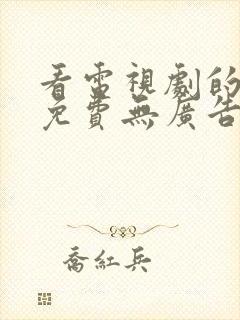 看電視劇的
免費無廣告
喬紅兵